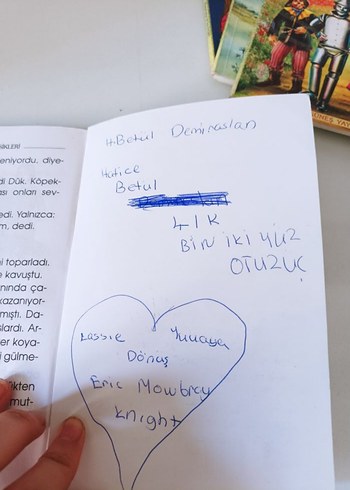 H.Betul Demiraslan
Hatice
Betul
4/K
BİN İKİ YÜZ
OTUZUÇ
Lassie Yuvaya
Dönüş
Eric Mowbray
Knight
eniyordu, diye-
di Dük. Köpek-
ası onları sev-
edi. Yalnızca:
m, dedi.
ni toparladı.
e kavuştu.
nında ça-
kazanıyor-
mıştı. Da-
şlardı. Ar-
er koya-
i gülme-
ükten
mut-